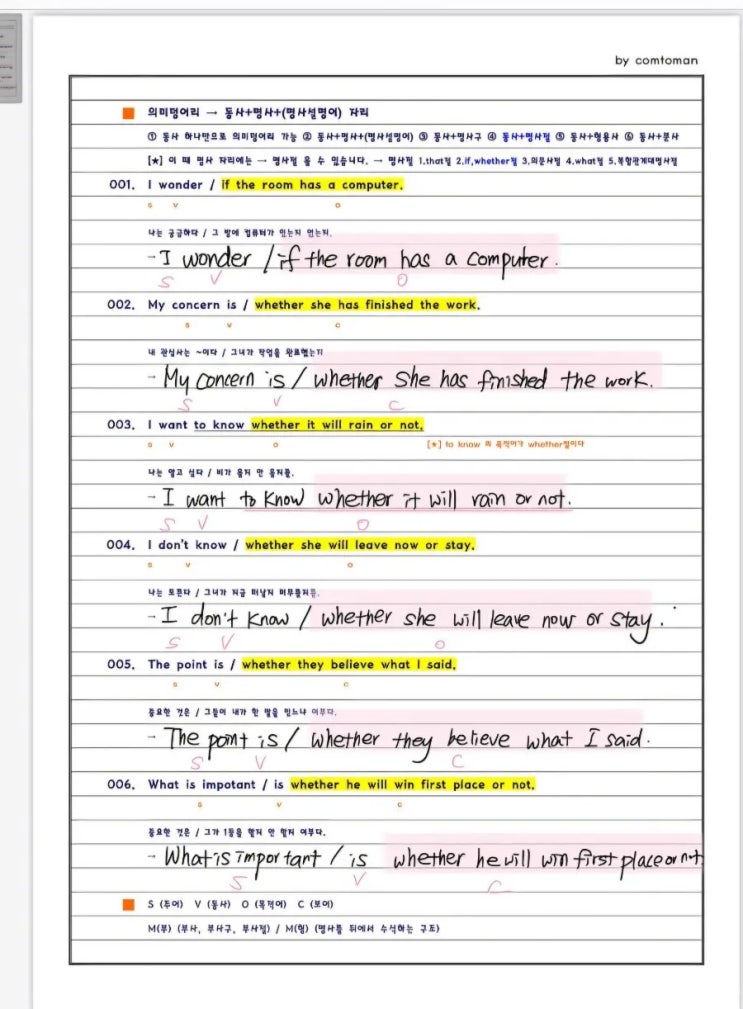 by comtoman
의미덩어리 → 동사+명사+(명사설명어) 자리
① 동사 하나만으로 의미덩어리 가능 ② 동사+명사+(명사설명어) ③ 동사+명사구 ④ 동사+명사절 ⑤ 동사+형용사 ⑥ 동사+분사
[★] 이 때 명사 자리에는 → 명사절 올 수 있습니다. → 명사절 1.that절 2.if,whether절 3.의문사절 4.what절 5.복합관계대명사절
001. I wonder / if the room has a computer.
S V O
나는 궁금하다 / 그 방에 컴퓨터가 있는지 없는지.
- I wonder / if the room has a computer.
S V O
002. My concern is / whether she has finished the work.
S V C
내 관심사는 ~이다 / 그녀가 작업을 완료했는지
- My concern is / whether she has finished the work.
S V C
003. I want to know whether it will rain or not.
S V O [★] to know 의 목적어가 whether절이다
나는 알고 싶다 / 비가 올지 안 올지를.
- I want to know whether it will rain or not.
S V O
004. I don't know / whether she will leave now or stay.
S V O
나는 모른다 / 그녀가 지금 떠날지 머무를지를.
- I don't know / whether she will leave now or stay.
S V O
005. The point is / whether they believe what I said.
S V C
중요한 것은 / 그들이 내가 한 말을 믿느냐 여부다.
- The point is / whether they believe what I said.
S V C
006. What is impotant / is whether he will win first place or not.
S V C
중요한 것은 / 그가 1등을 할지 안 할지 여부다.
- What is important / is whether he will win first place or not.
S V C
S (주어) V (동사) O (목적어) C (보어)
M(부) (부사, 부사구, 부사절) / M(형) (명사를 뒤에서 수식하는 구조)